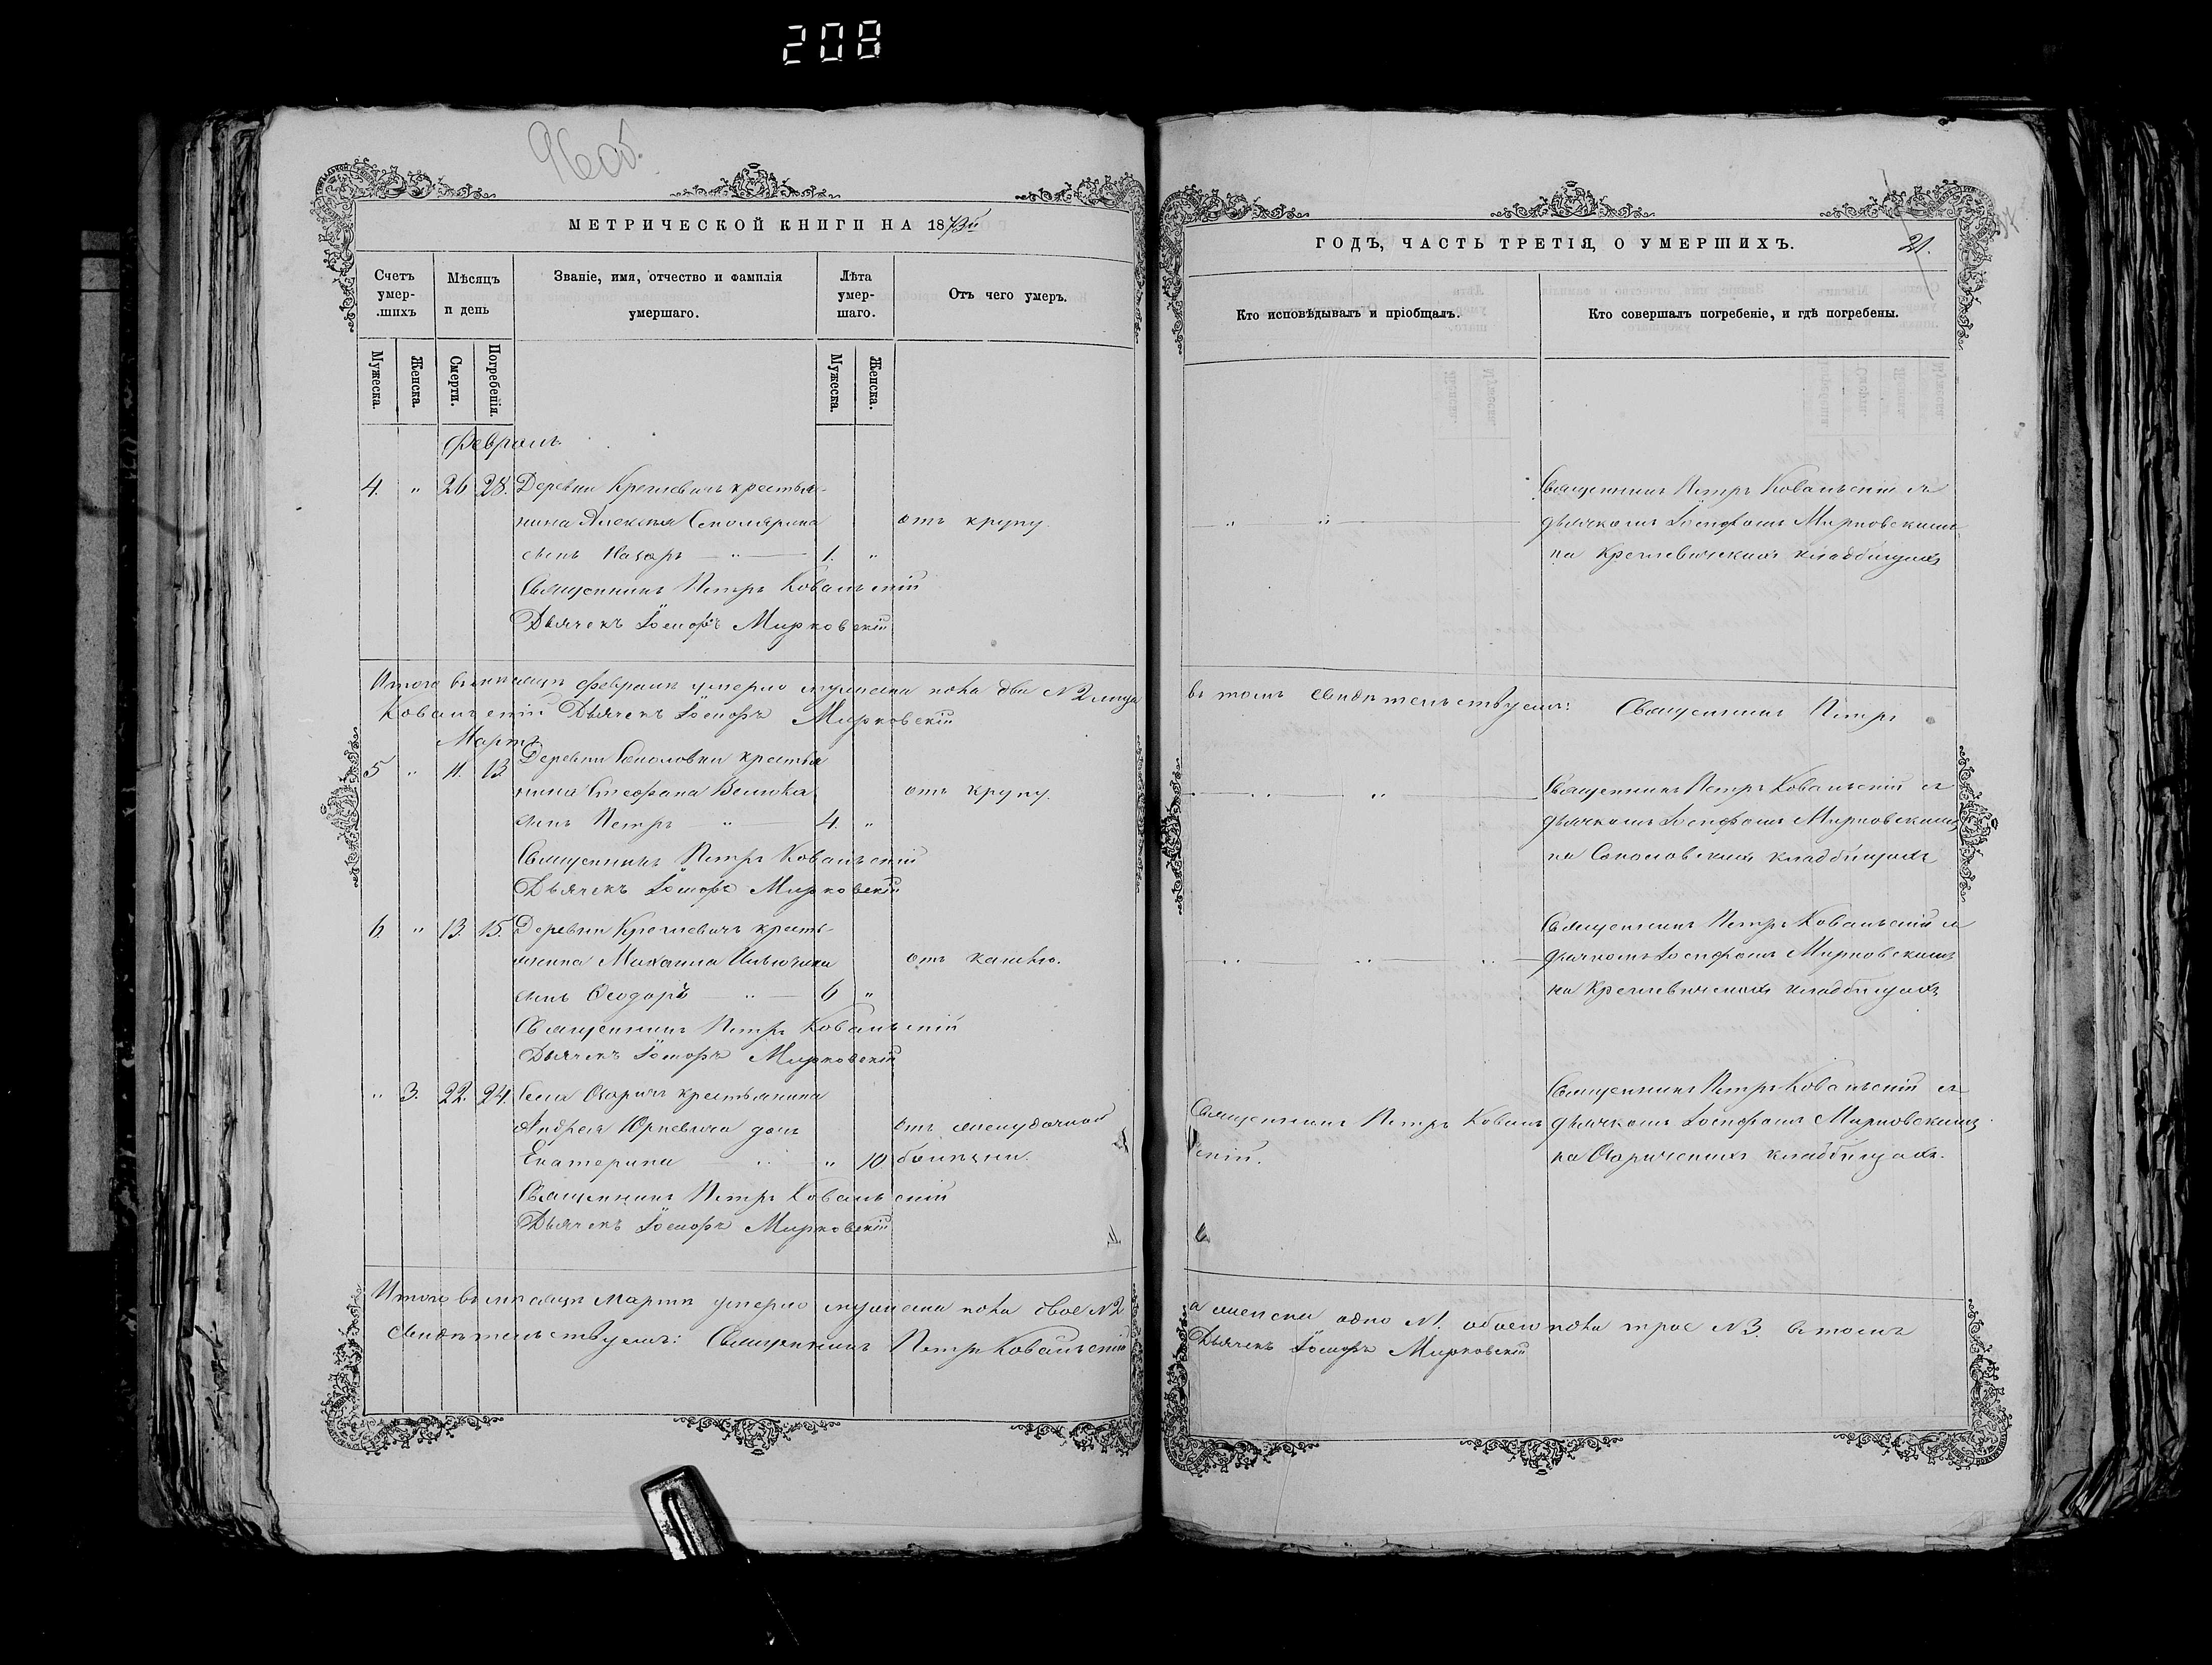 208
96об.
МЕТРИЧЕСКОЙ КНИГИ НА 1873й
Счетъ умер-шихъ
Мѣсяцъ и день
Званіе, имя, отчество и фамилія умершаго.
Лѣта умер-шаго.
Отъ чего умеръ.
Мужеска.
Женска.
Смерти.
Погребенія.
Мужеска.
Женска.
Февраль
4. " 26 28. Деревни Крешевичъ крестья-
нина Алексѣя Столярика отъ крупу.
сынъ Назаръ — " — 1. "
Священникъ Петръ Ковальскій
Дьячекъ Іосифъ Мирковскій
Итого въ мѣсяцѣ февралѣ умерло мужеска пола два №2 лица
Ковальскій Дьячекъ Іосифъ Мирковскій
Мартъ
5 " 11. 13. Деревни Соколовки крестья
нина Стефана отъ крупу.
сынъ Петръ — " — 4. "
Священникъ Петръ Ковальскій
Дьячекъ Іосифъ Мирковскій
6. " 13. 15. Деревни Крешевичъ кресть-
янина Михаила отъ кашлю.
сынъ Ѳеодоръ — " — 6 "
Священникъ Петръ Ковальскій
Дьячекъ Іосифъ Мирковскій
" 3. 22. 24. Села Озаричъ крестьянина
Андрея Юркевича дочь отъ желудочной
Екатерина " " 10 болѣзни.
Священникъ Петръ Ковальскій
Дьячекъ Іосифъ Мирковскій
Итого въ мѣсяцѣ Мартѣ умерло мужеска пола двое №2
свидѣтельствуемъ: Священникъ Петръ Ковальскій
ГОДЪ, ЧАСТЬ ТРЕТІЯ, О УМЕРШИХЪ.
21.
Кто исповѣдывалъ и пріобщалъ.
Кто совершалъ погребеніе, и гдѣ погребены.
Священникъ Петръ Ковальскій съ
— " " — дьячкомъ Іосифомъ Мирковскимъ
на Крешевичскихъ кладбищахъ
въ томъ свидѣтельствуемъ: Священникъ Петръ
Священникъ Петръ Ковальскій съ
— " — " — дьячкомъ Іосифомъ Мирковскимъ
на Соколовскихъ кладбищахъ
Священникъ Петръ Ковальскій съ
" " " — дьячкомъ Іосифомъ Мирковскимъ
на Крешевичскихъ кладбищахъ
Священникъ Петръ Ковальскій съ
Священникъ Петръ Коваль дьячкомъ Іосифомъ Мирковскимъ
скій. на Озаричскихъ кладбищахъ.
а женска одно №1. обоего пола трое №3. въ томъ
Дьячекъ Іосифъ Мирковскій